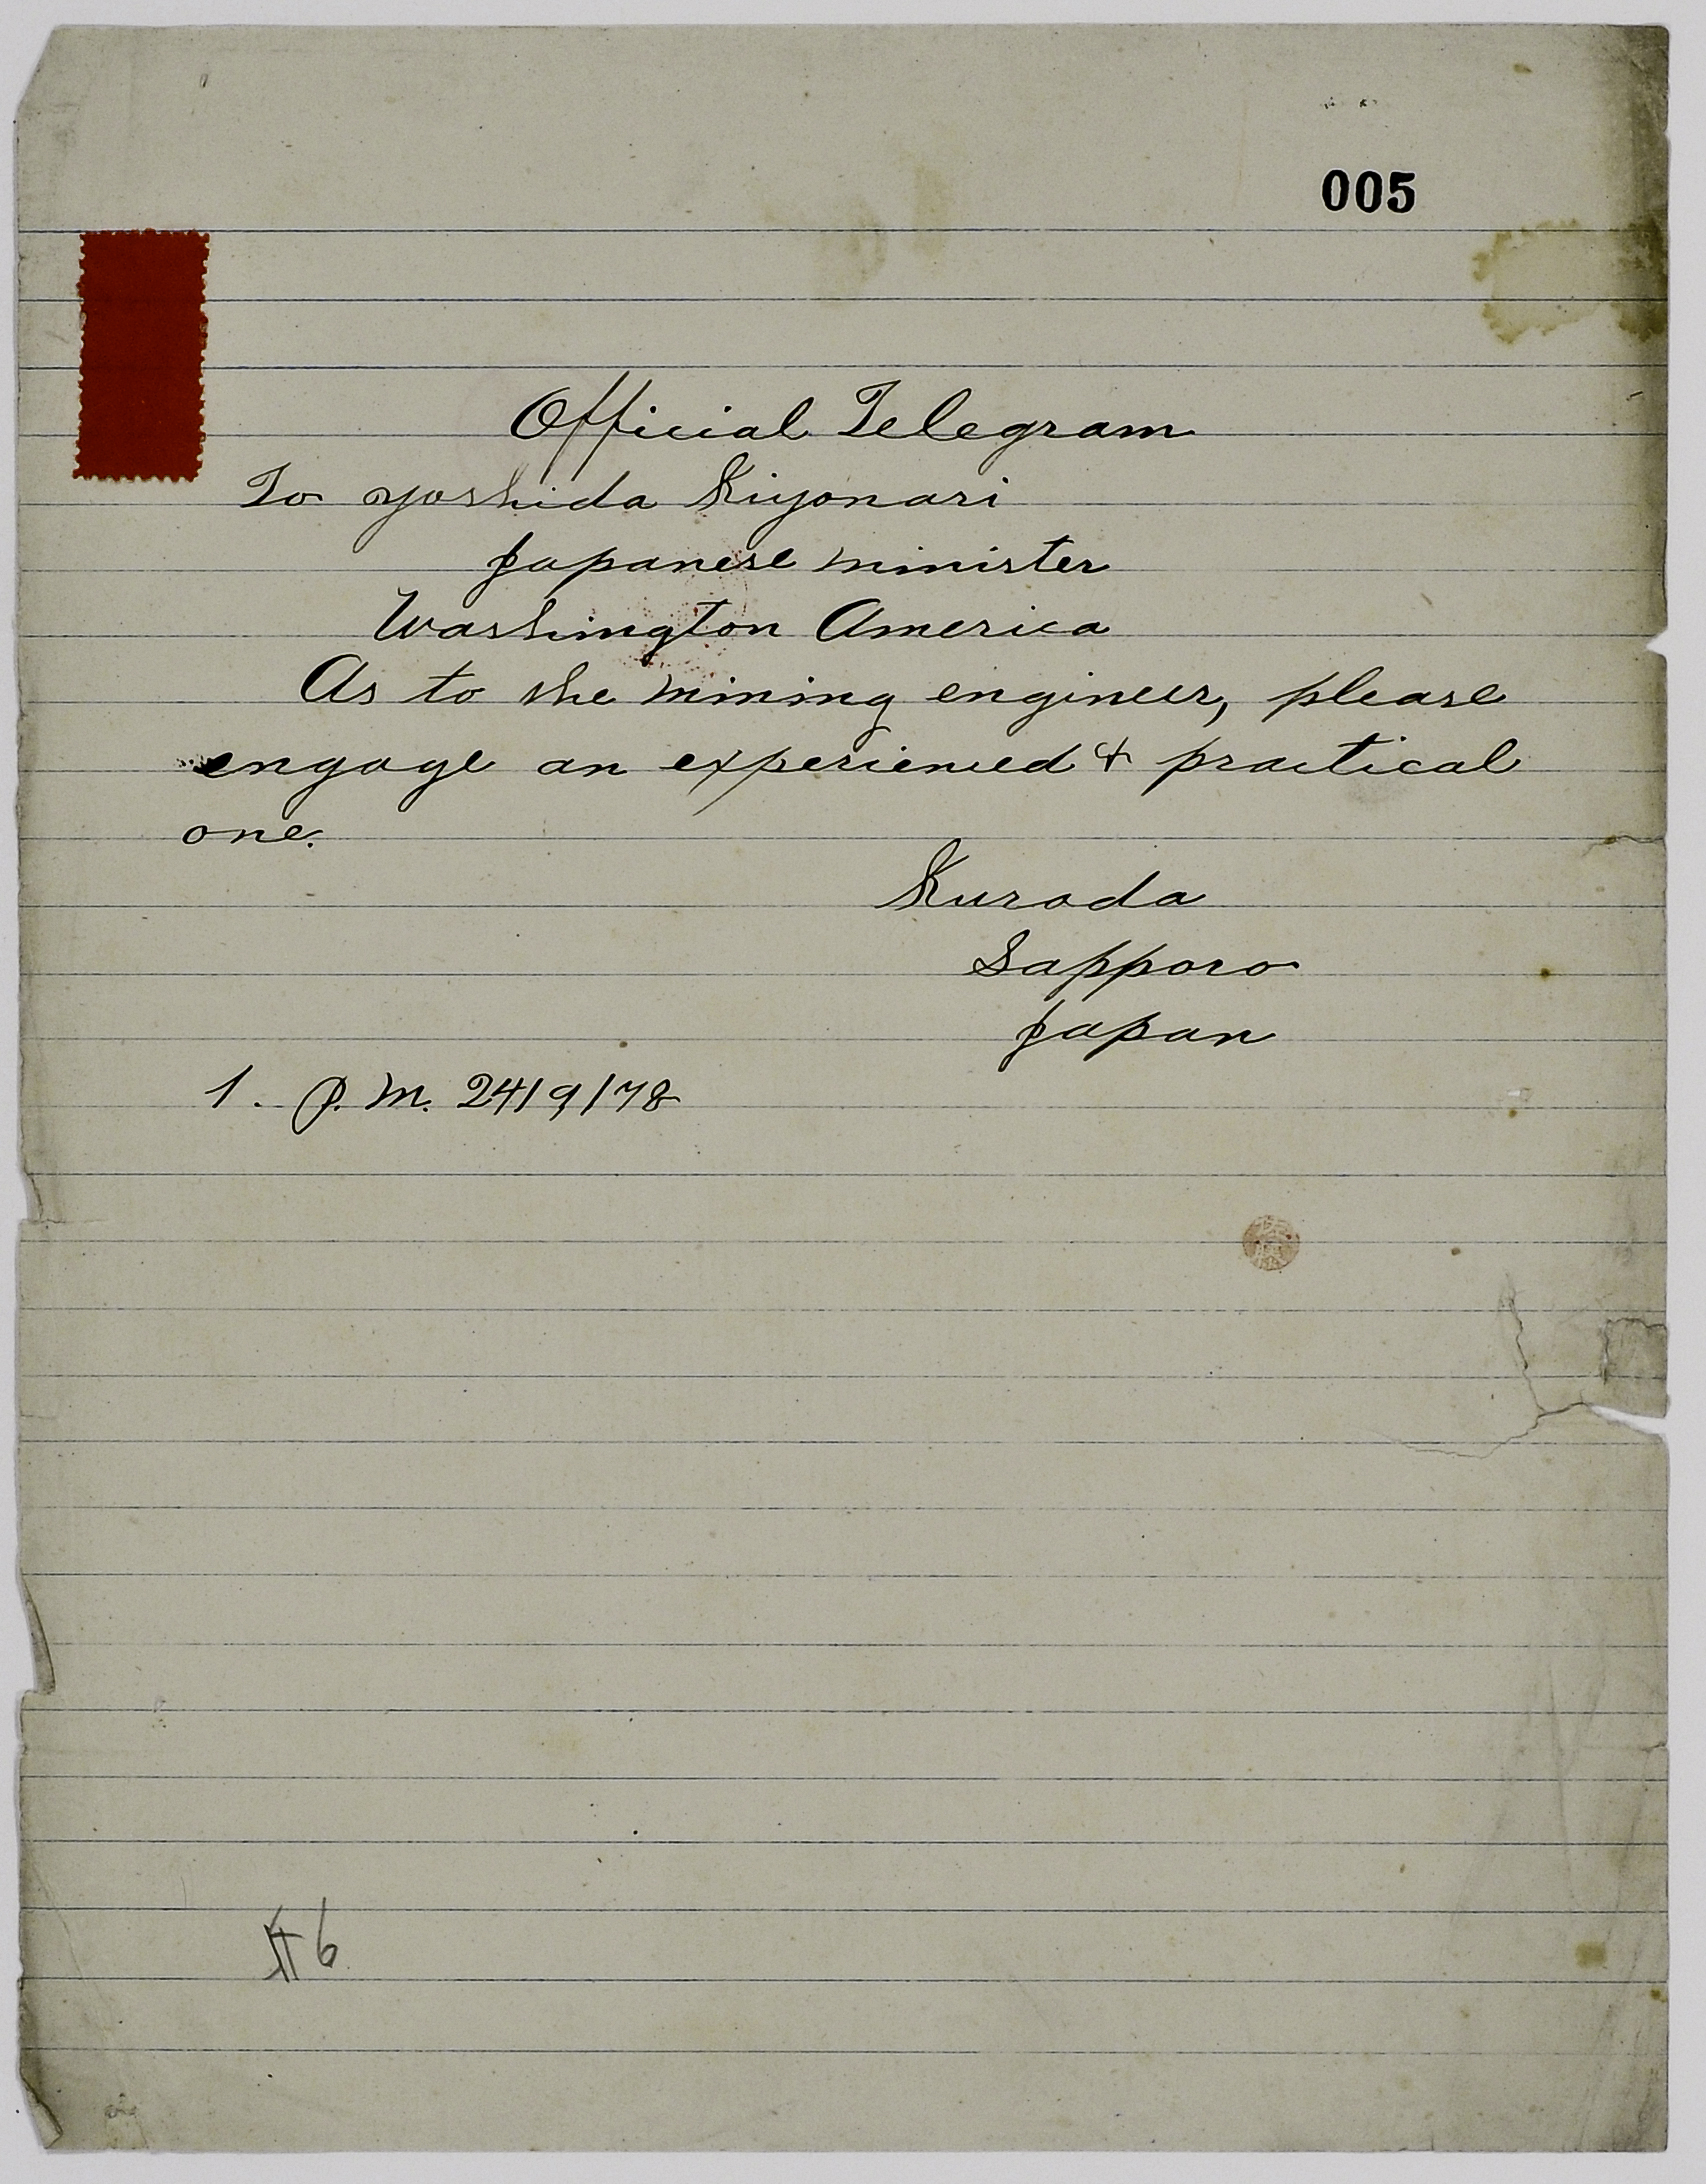 005
Official Telegram
To Yoshida Kiyonari
Japanese minister
Washington America
As to the mining engineer, please
engage an experienced & practical
one.
Kuroda
Sapporo
Japan
1. P.M. 24/9/78
#6